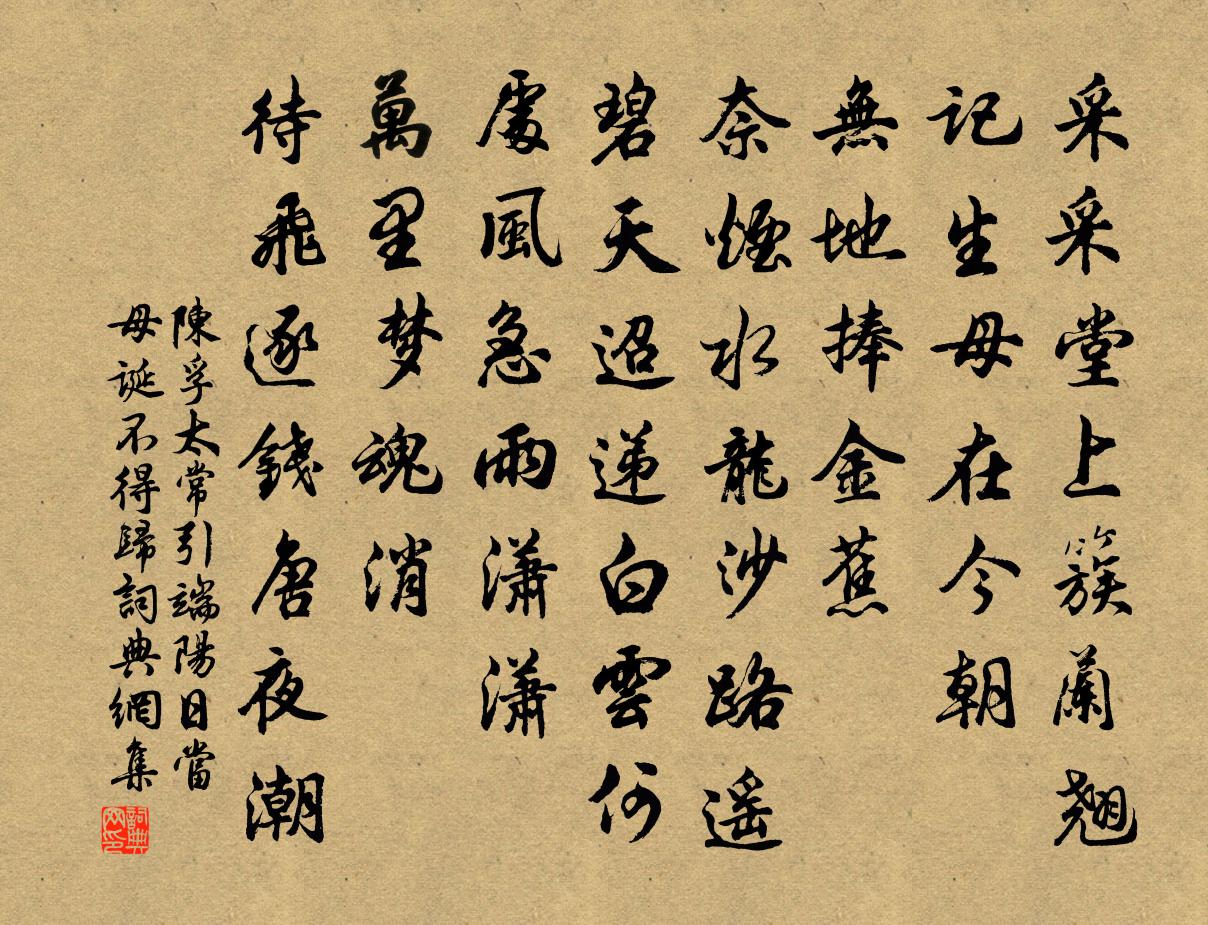 采采堂上簇蘭翹
記生母在今朝
無地捧金蕉
奈煙水龍沙路遥
碧天迢递白雲何
處風急雨瀟瀟
萬里梦魂消
待飛逐錢唐夜潮
陳孚太常引端陽日當
母誕不得歸詞典網集
詞典
网印